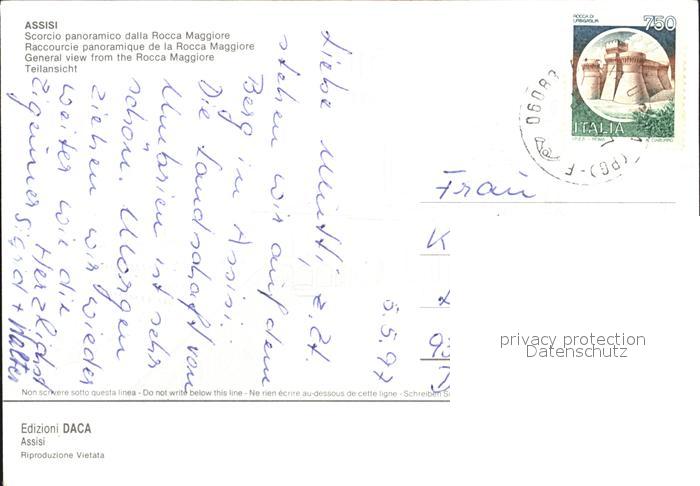 ASSISI
Scorcio panoramico dalla Rocca Maggiore
Raccourcie panoramique de la Rocca Maggiore
General view from the Rocca Maggiore
Teilansicht
ROCCA DI
URBISAGLIA
750
ITALIA
06083
(PG)-F
5.5.97
Liebe Mutti, z.Zt.
stehen wir auf dem
Berg in Assisi.
Die Landschaft von
Umbrien ist sehr
schön. Morgen
ziehen wir wieder
weiter wie die
Zigeuner. Herzlichst
Sigrid + Walter
Frau
K
93
privacy protection
Datenschutz
Non scrivere sotto questa linea - Do not write below this line - Ne rien écrire au-dessous de cette ligne - Schreiben S
Edizioni DACA
Assisi
Riproduzione Vietata